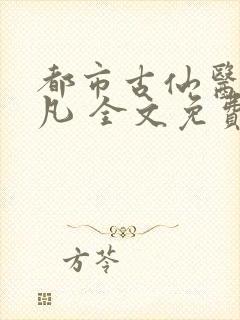 都市古仙醫
凡 全文免費
方芩